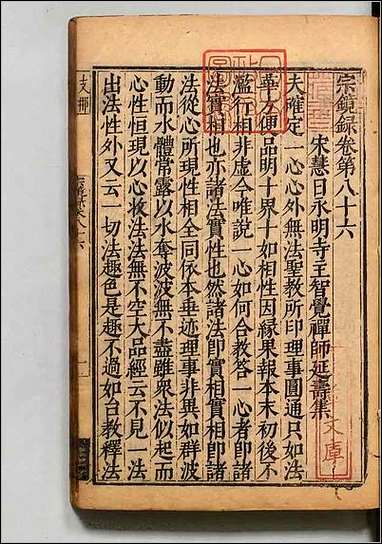 宗鏡録卷第八十六
宋慧日永明寺主智覺禪師延壽集
夫確定一心心外無法聖教所印理事圓通只如法
華方便品明十界十如相性因緣果報本末初後不
濫行相非虛今唯說一心如何合教答一心者即諸
法實相也亦諸法實性也然諸法即實相實相即諸
法從心所現性相全同依本垂迹理事非異如群波
動而水體常露以水奪波波無不盡雖眾法似起而
心性恒現以心收法法無不空大品經云不見一法
出法性外又云一切法趣色是趣不過如台教釋法
文庫